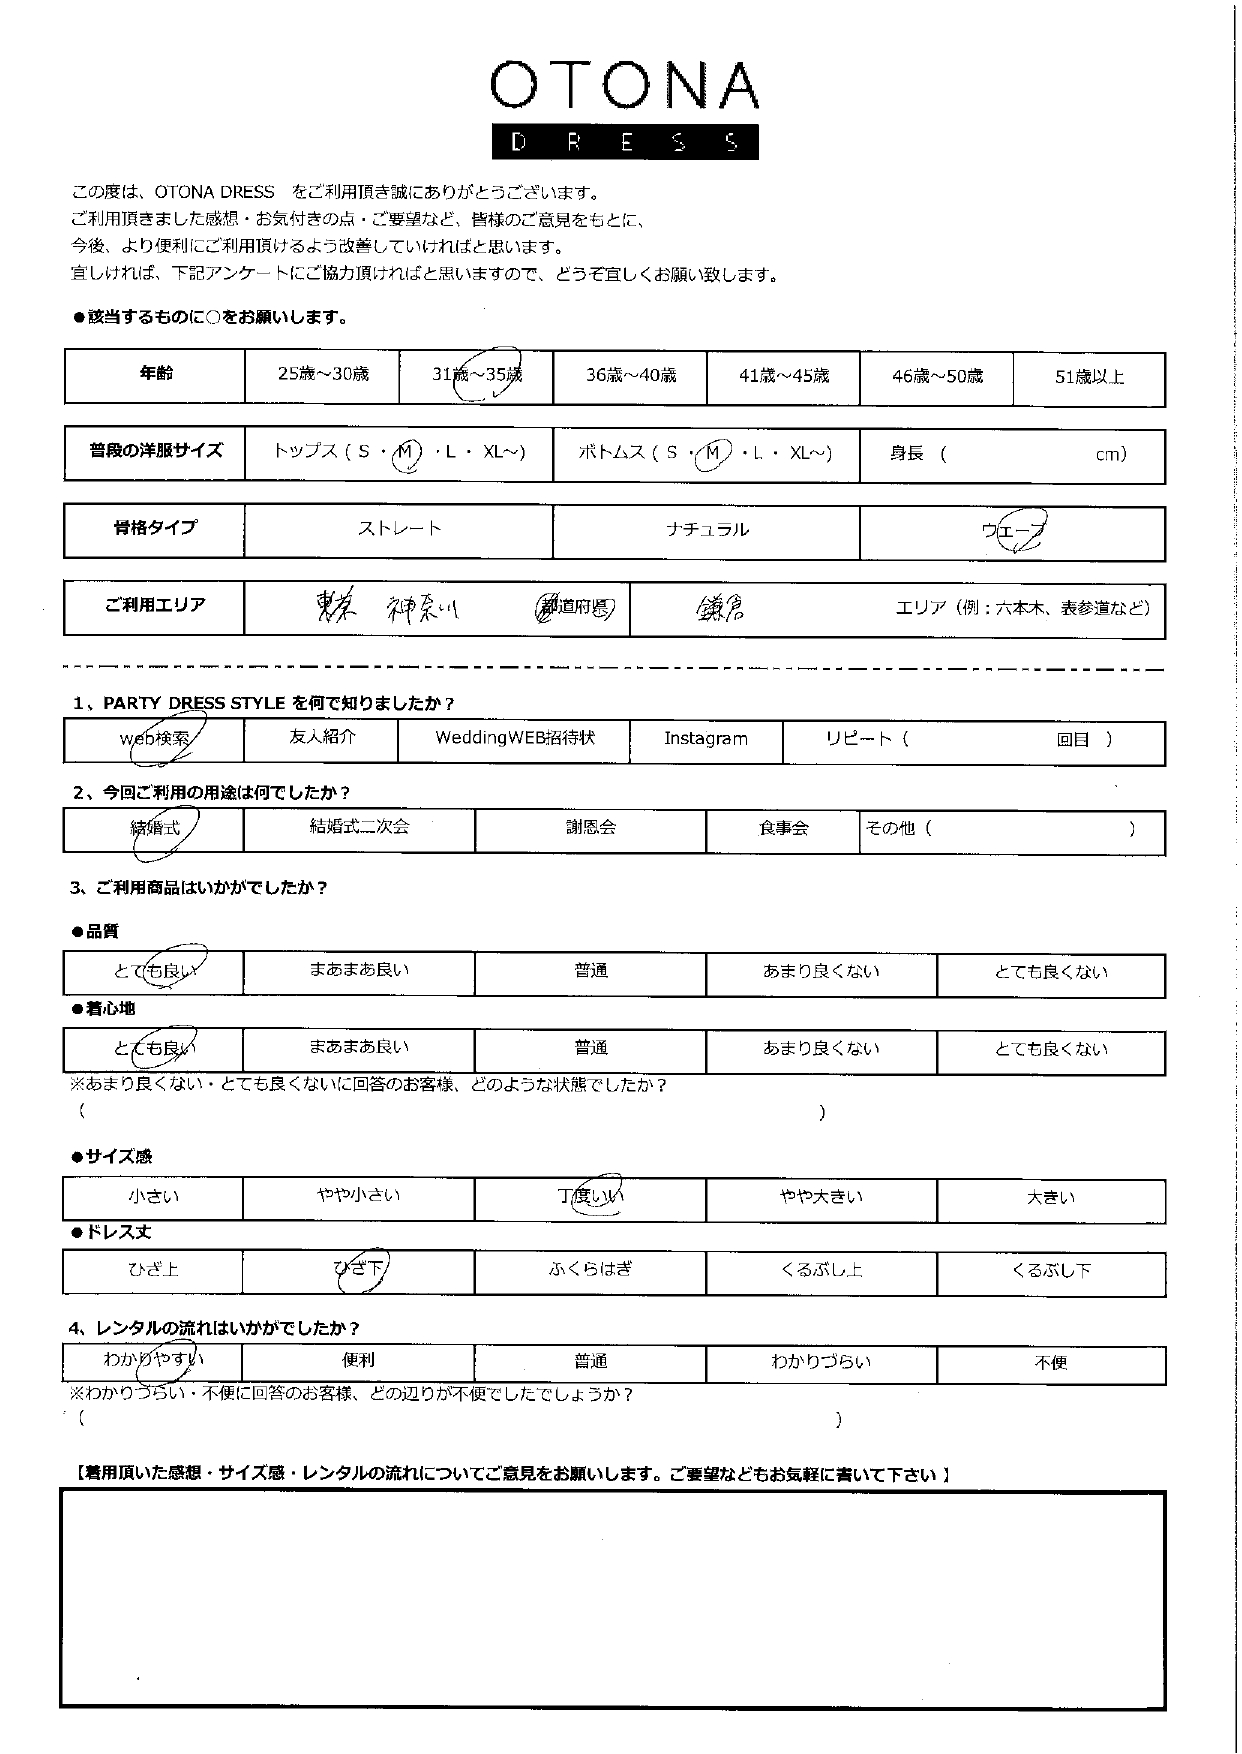 OTONA
DRESS
この度は、OTONA DRESS　をご利用頂き誠にありがとうございます。
ご利用頂きました感想・お気付きの点・ご要望など、皆様のご意見をもとに、
今後、より便利にご利用頂けるよう改善していければと思います。
宜しければ、下記アンケートにご協力頂ければと思いますので、どうぞ宜しくお願い致します。
●該当するものに○をお願いします。
年齢 25歳～30歳 31歳～35歳 36歳～40歳 41歳～45歳 46歳～50歳 51歳以上
普段の洋服サイズ トップス ( S ・ M ・L ・ XL～) ボトムス ( S ・ M ・L ・ XL～) 身長 ( cm)
骨格タイプ ストレート ナチュラル ウェーブ
ご利用エリア 神奈川 都道府県 鎌倉 エリア（例：六本木、表参道など）
1、PARTY DRESS STYLE を何で知りましたか？
web検索 友人紹介 WeddingWEB招待状 Instagram リピート（ 回目 ）
2、今回ご利用の用途は何でしたか？
結婚式 結婚式二次会 謝恩会 食事会 その他（ ）
3、ご利用商品はいかがでしたか？
●品質
とても良い まあまあ良い 普通 あまり良くない とても良くない
●着心地
とても良い まあまあ良い 普通 あまり良くない とても良くない
※あまり良くない・とても良くないに回答のお客様、どのような状態でしたか？
( )
●サイズ感
小さい やや小さい 丁度いい やや大きい 大きい
●ドレス丈
ひざ上 ひざ下 ふくらはぎ くるぶし上 くるぶし下
4、レンタルの流れはいかがでしたか？
わかりやすい 便利 普通 わかりづらい 不便
※わかりづらい・不便に回答のお客様、どの辺りが不便でしたでしょうか？
( )
【着用頂いた感想・サイズ感・レンタルの流れについてご意見をお願いします。ご要望などもお気軽に書いて下さい 】